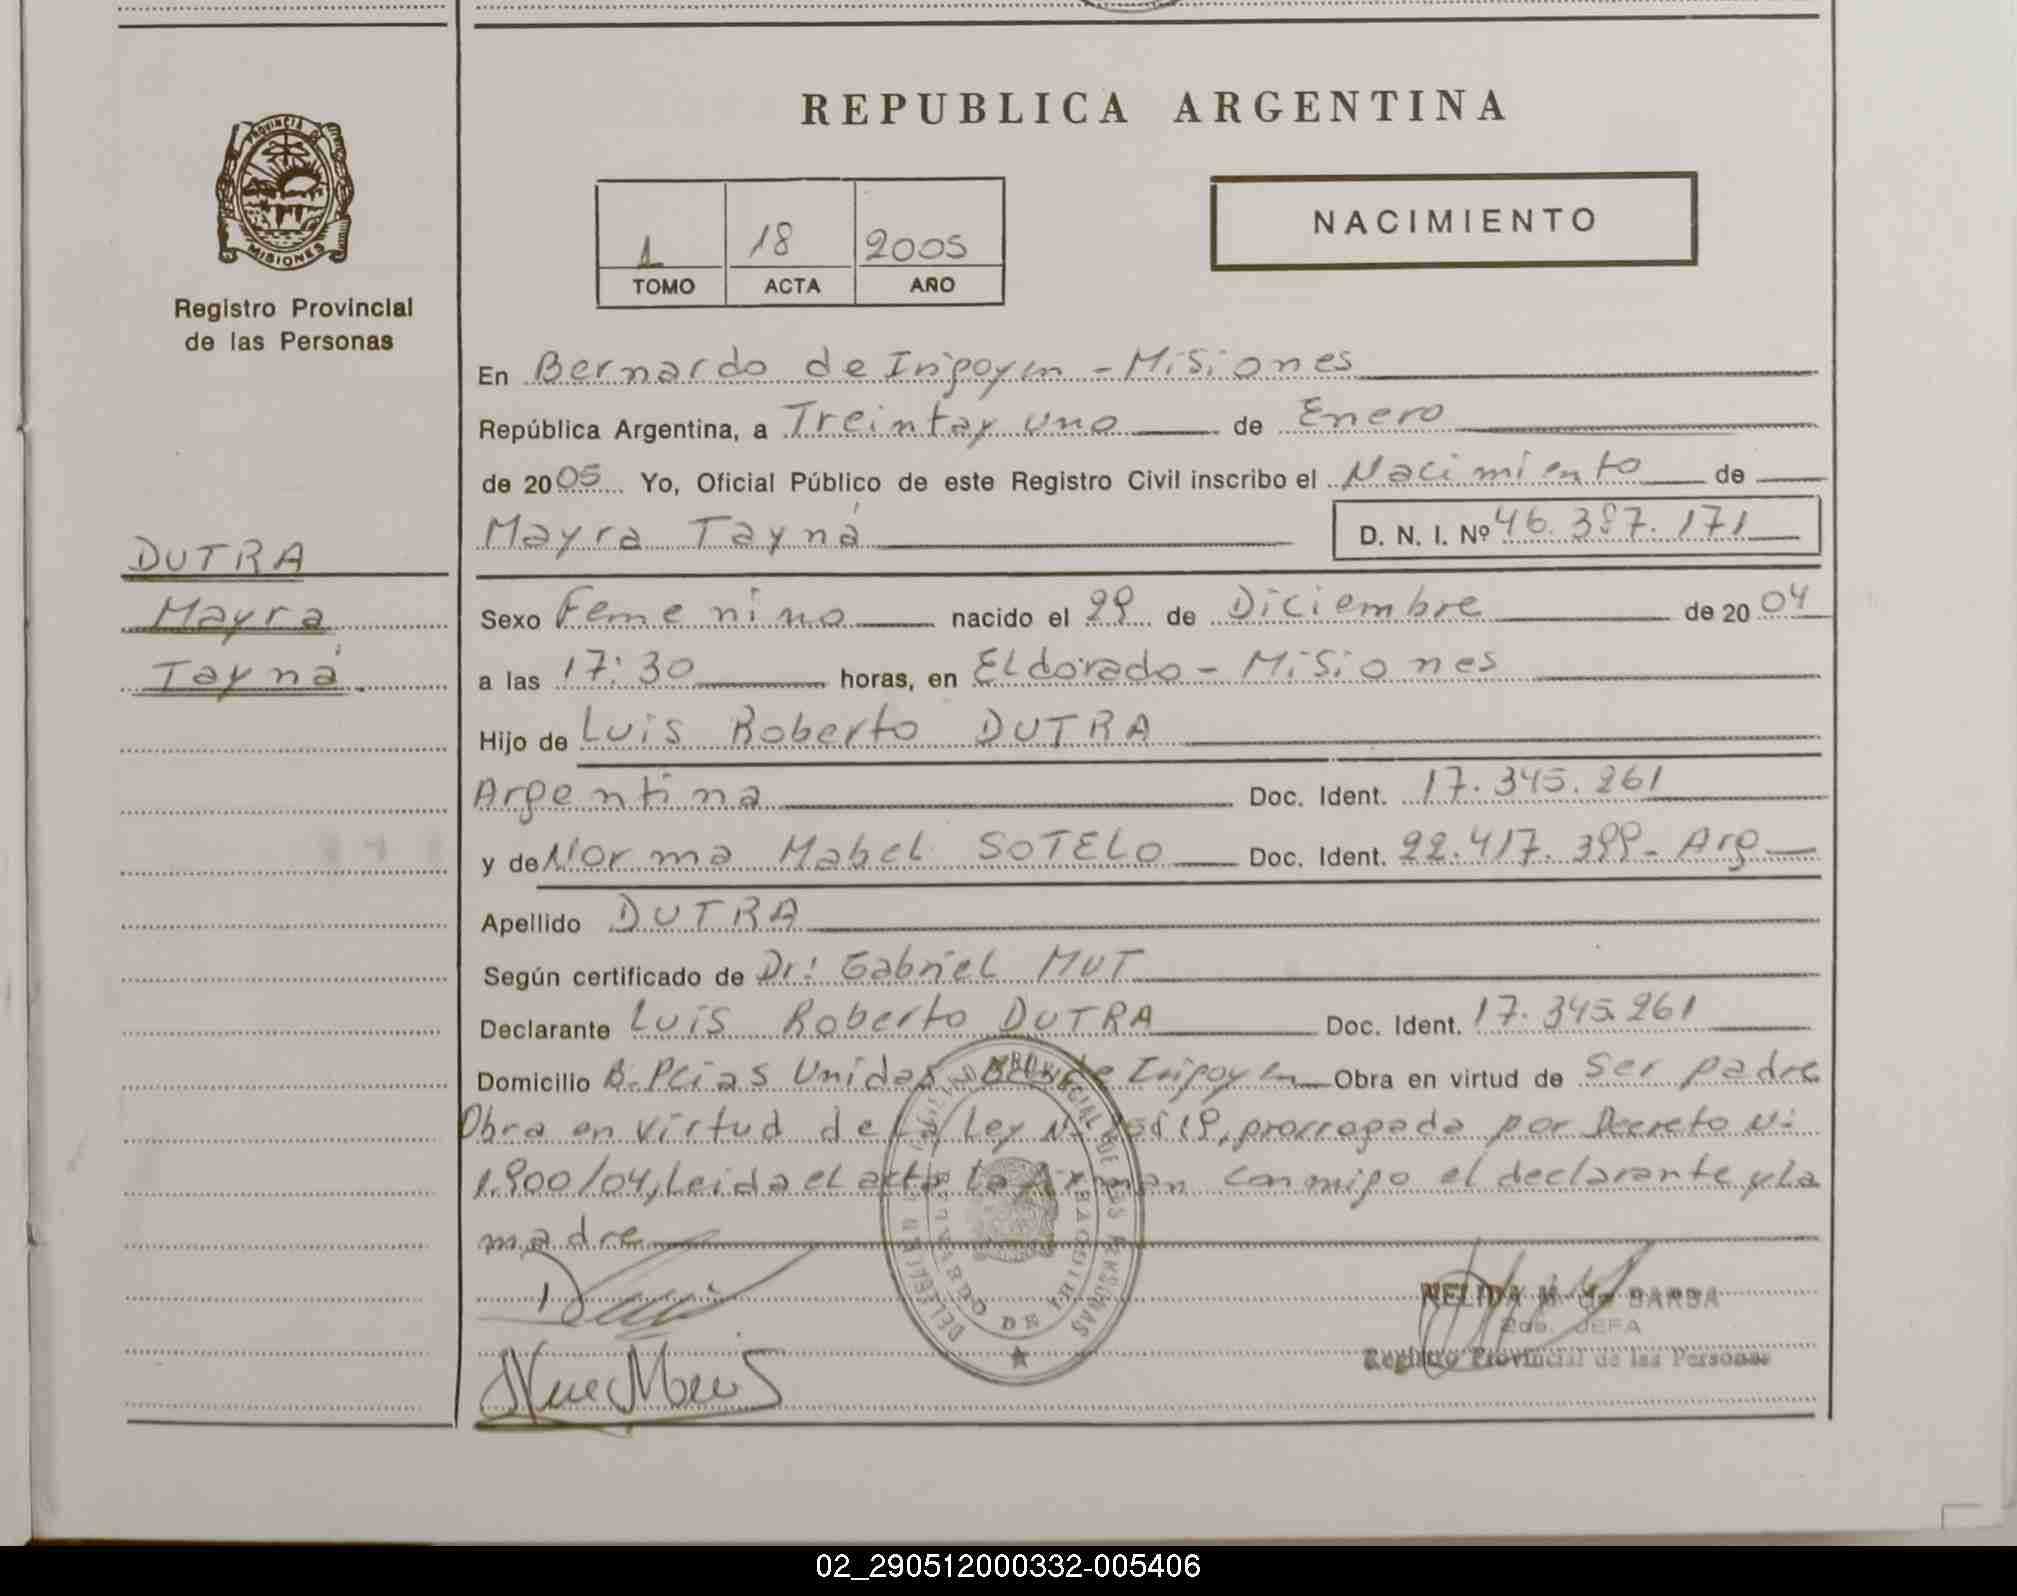 REPUBLICA ARGENTINA
PROVINCIA DE
MISIONES
Registro Provincial
de las Personas
1 18 2005
TOMO ACTA AÑO
NACIMIENTO
En Bernardo de Irigoyen - Misiones
República Argentina, a Treinta y uno de Enero
de 2005 Yo, Oficial Público de este Registro Civil inscribo el Nacimiento de
Mayra Tayná D. N. I. Nº 46.387.171
DUTRA
Mayra
Tayná
Sexo Femenino nacido el 29 de Diciembre de 2004
a las 17:30 horas, en Eldorado - Misiones
Hijo de Luis Roberto DUTRA
Argentina Doc. Ident. 17.345.261
y de Norma Mabel SOTELO Doc. Ident. 22.417.399 - Arg
Apellido DUTRA
Según certificado de Dr: Gabriel MUT
Declarante Luis Roberto DUTRA Doc. Ident. 17.345.261
Domicilio B. Pcias Unidas de Irigoyen Obra en virtud de ser padre
Obra en virtud de la Ley N: prorrogada por Decreto N:
1.900/04, Leida el acta la firman conmigo el declarante y la
madre
DELEGACION REGISTRO PROVINCIAL DE LAS PERSONAS
BERNARDO DE IRIGOYEN
NELIDA M. de BARBA
JEFA
Registro Provincial de las Personas
02_290512000332-005406